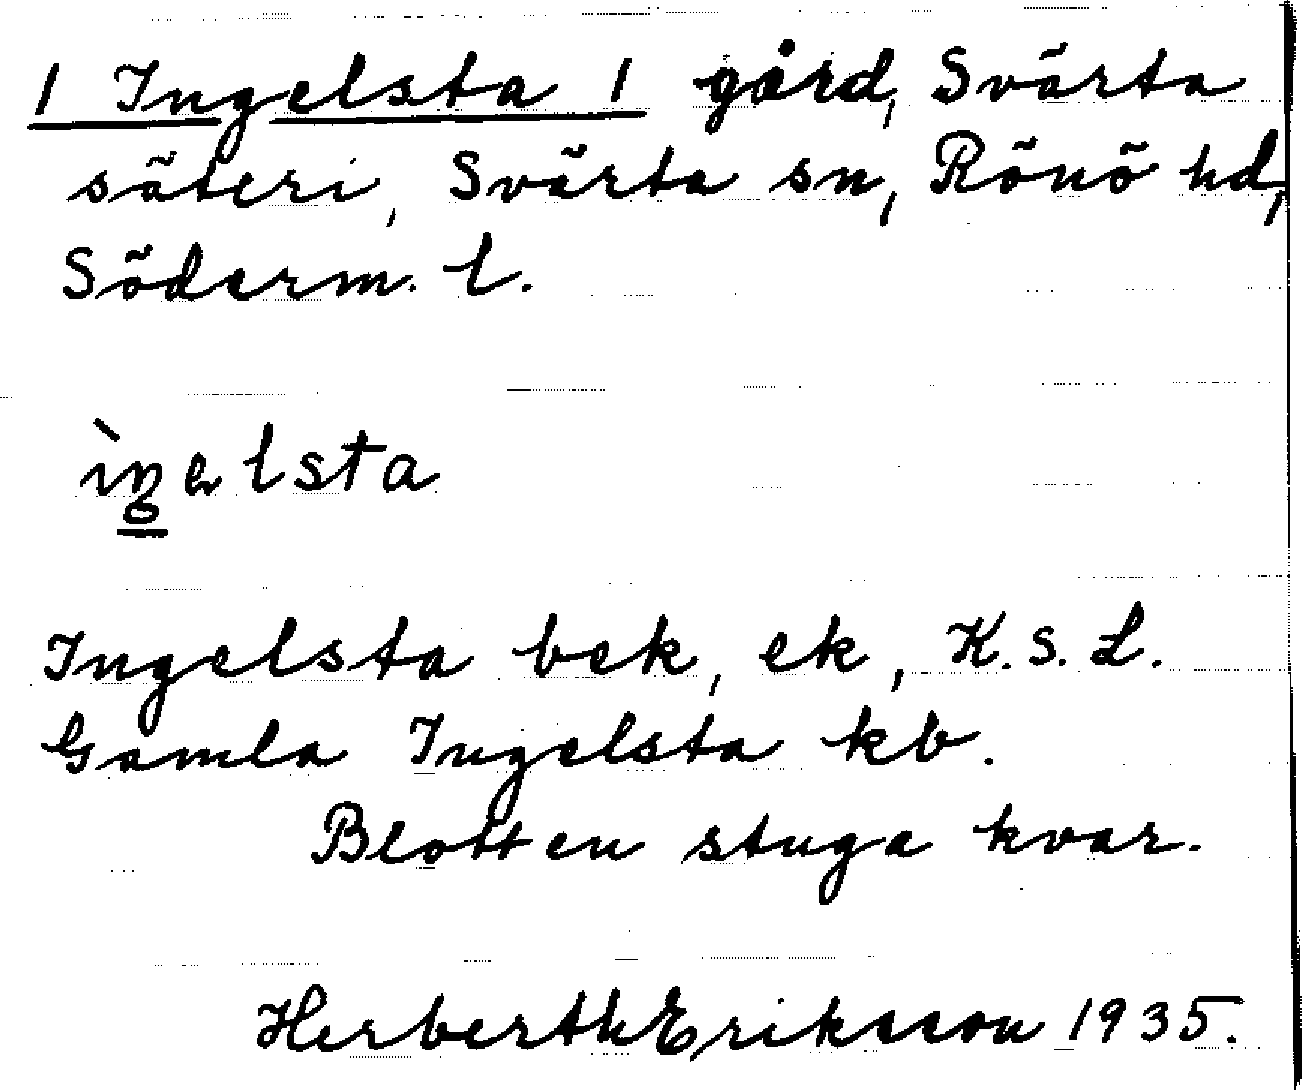 1 Ingelsta 1 gård, Svärta
säteri, Svärta sn, Rönö hd,
Söderm. l.
Ingelsta bek, ek, K. S. L.
Gamla Ingelsta kb.
Blott en stuga kvar.
Herbert Eriksson 1935.